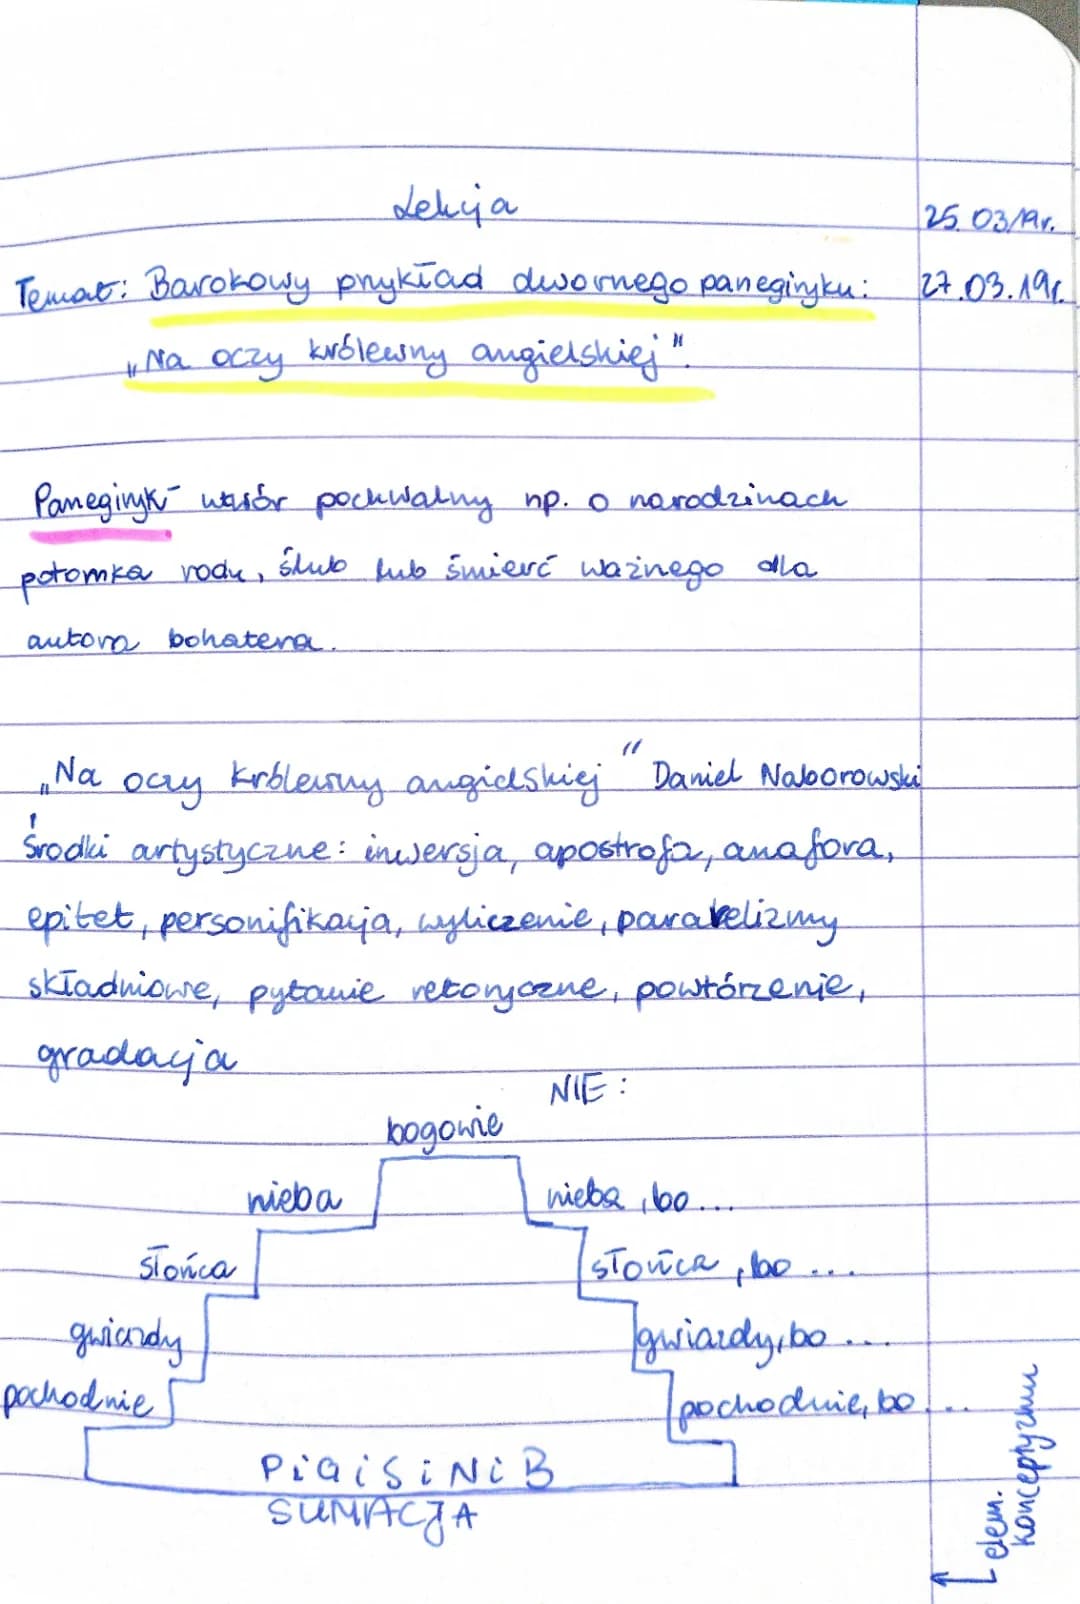 Lekcja 25.03.19r.
Temat: Barokowy przykład dwornego panegiryku: 27.03.19r.
„Na oczy królewny angielskiej".
Panegiryk - utwór pochwalny np. o narodzinach
potomka rodu, ślub lub śmierć ważnego dla
autora bohatera.
„Na oczy królewny angielskiej" Daniel Naborowski
Środki artystyczne: inwersja, apostrofa, anafora,
epitet, personifikacja, wyliczenie, paralelizmy
składniowe, pytanie retoryczne, powtórzenie,
gradacja
NIE:
bogowie
nieba nieba, bo...
słońca słońca, bo ...
gwiazdy gwiazdy, bo ...
pochodnie pochodnie, bo ...
P i G i S i N i B
SUMACJA
elem.
konceptyzmu